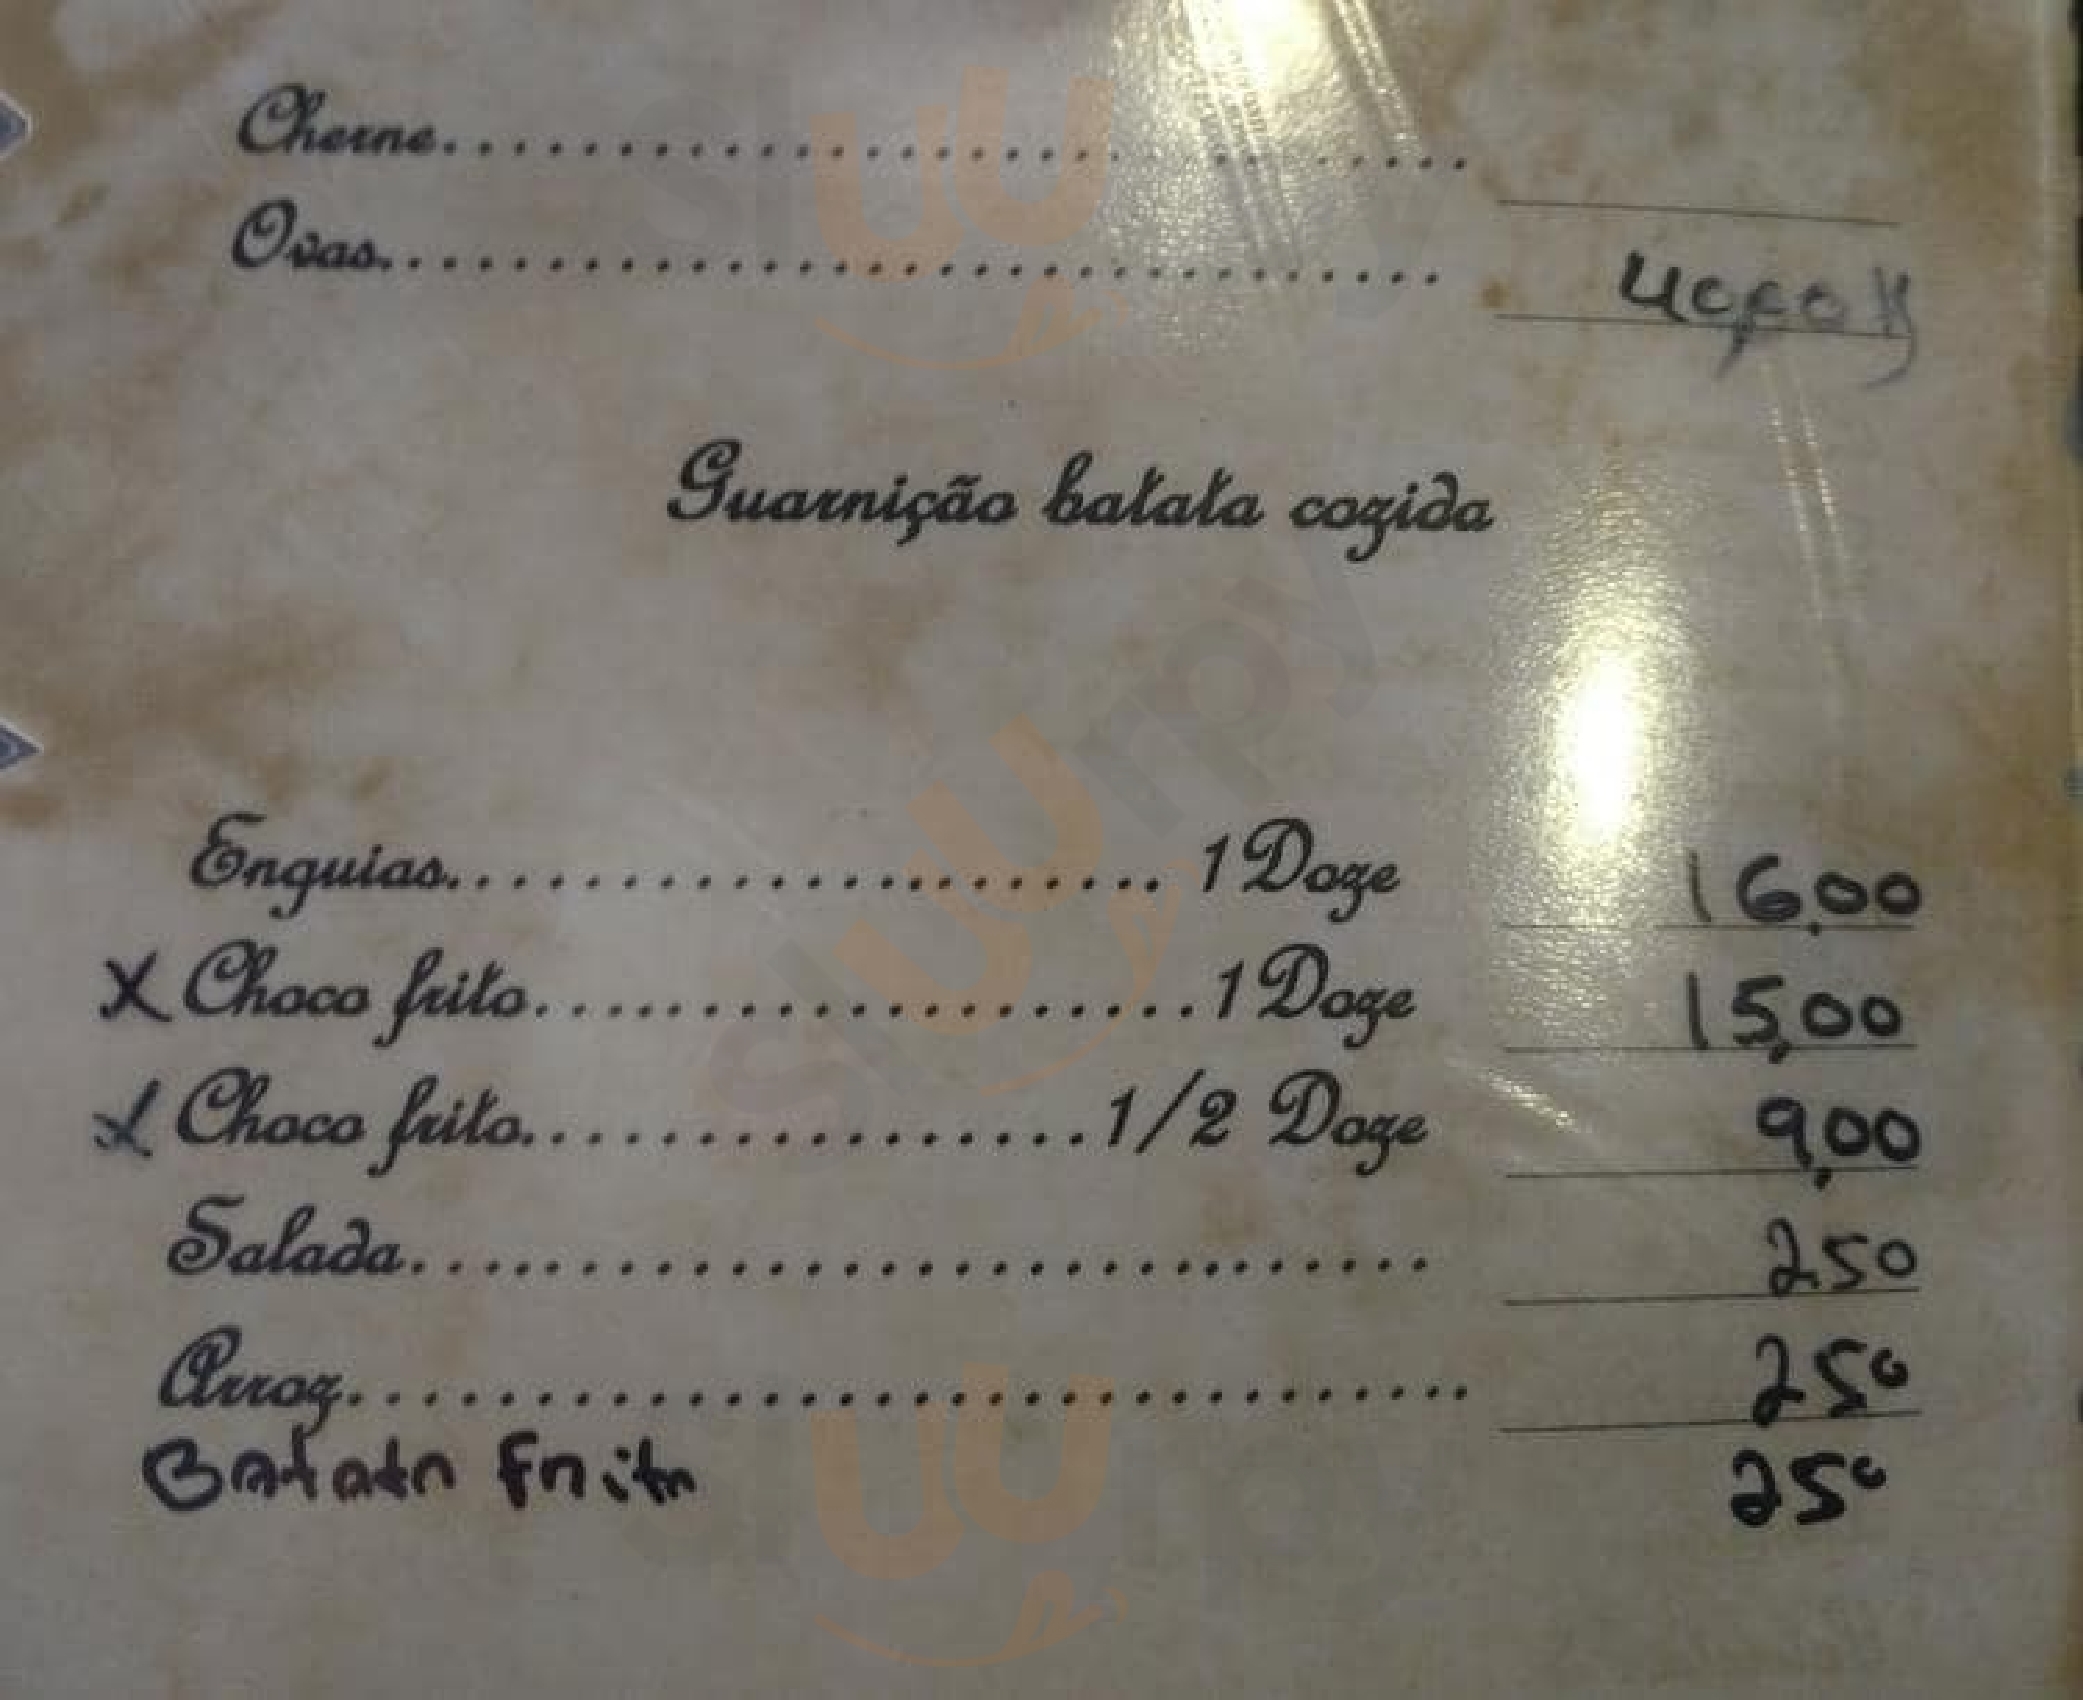 Cherne..............................
Ovas.............................. 40,00 K
Guarnição batata cozida
Enguias......................... 1 Doze 16,00
X Choco frito........................1 Doze 15,00
X Choco frito....................1/2 Doze 9,00
Salada.............................. 2.50
Arroz................................ 2.50
Batata Frita 2.50
sluurpy